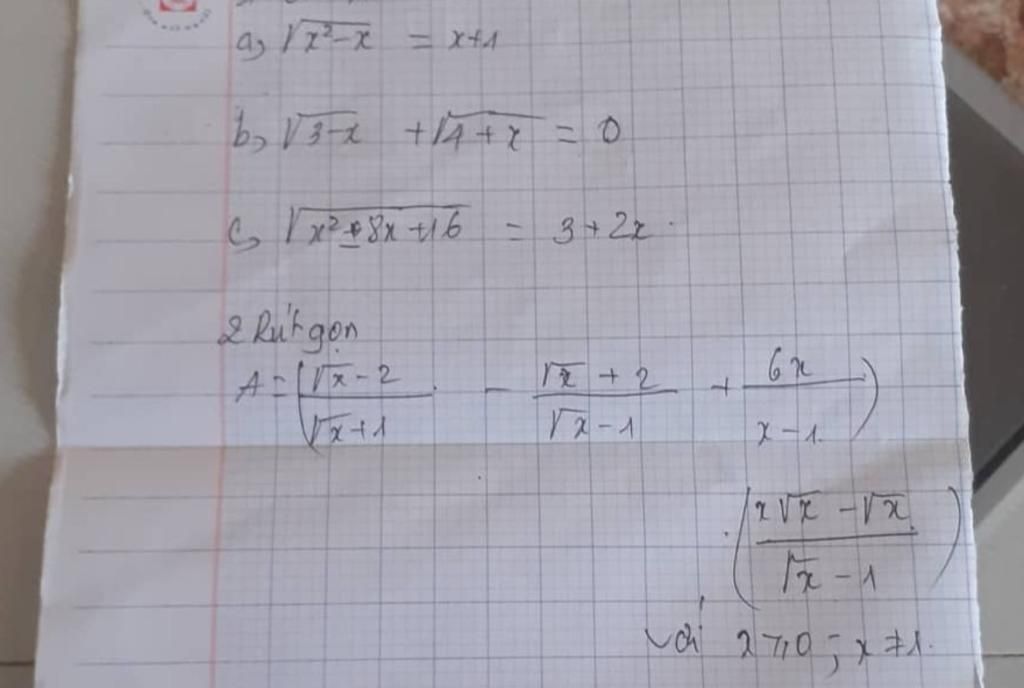 a, √(x²-x) = x+1
b, √(3-x) + √(4+x) = 0
c, √(x²+8x+16) = 3+2x.
2 Rút gọn
A = ((√x - 2)/(√x + 1) - (√x + 2)/(√x - 1) + 6x/(x - 1))
. ((x√x - √x)/(√x - 1))
với x ≥ 0 ; x ≠ 1.